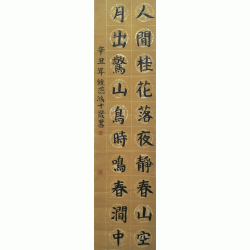 人閒桂花落夜靜春山空
月出驚山鳥時鳴春澗中
辛丑年
十歲書